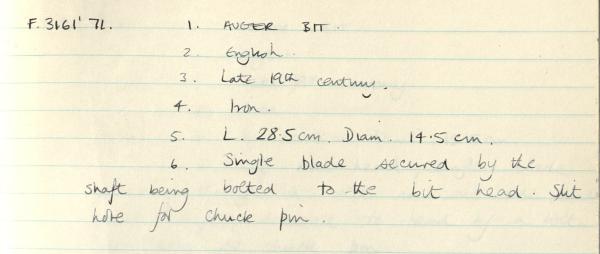 F. 3161' 71. 1. AUGER BIT.
2. English.
3. Late 19th century.
4. Iron.
5. L. 28.5 cm. Diam. 14.5 cm.
6. Single blade secured by the
shaft being bolted to the bit head. Slit
hole for chuck pin.